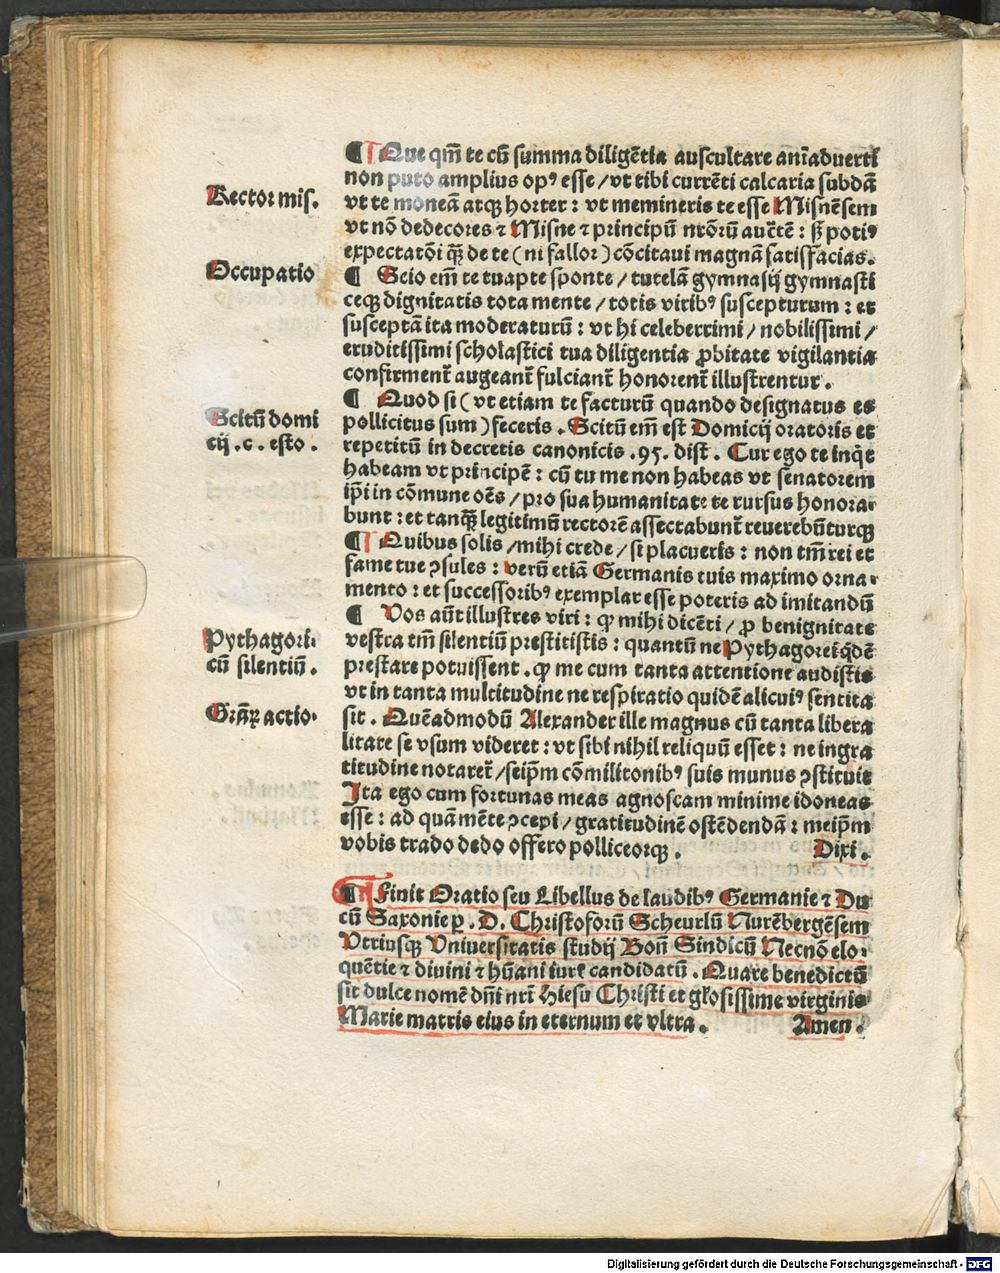 ¶ Que qm̄ te cū summa diligētia auscultare aīaduerti
non puto amplius opꝰ esse / vt tibi currēti calcaria subdā
Rector mis.
vt te moneā atqꝫ horter : vt memineris te esse Misnēsem
vt nō dedecores ⁊ Misne ⁊ principū nrōrū auctē : sꝫ potiꝰ
expectatōi quā de te ( ni fallor ) cōcitaui magnā satisfacias.
Occupatio
¶ Scio em̄ te tuapte sponte / tutelā gymnasij gymnasti
ceqꝫ dignitatis tota mente / totis viribꝰ suscepturum : et
susceptā ita moderaturū : vt hi celeberrimi / nobilissimi /
eruditissimi scholastici tua diligentia ꝓbitate vigilantia
confirment̄ augeant̄ fulciant̄ honorent̄ illustrentur .
¶ Quod si ( vt etiam te facturū quando designatus es
Scitū domi
cij . c . esto .
pollicitus sum ) feceris . Scitū em̄ est Domicij oratoris et
repetitū in decretis canonicis .95. dist . Cur ego te inq̄t
habeam vt principē : cū tu me non habeas vt senatorem
ip̄i in cōmune oēs / pro sua humanitate te rursus honora
bunt : et tanqꝫ̄ legitimū rectorē affectabunt̄ reuerebūturqꝫ
¶ Quibus solis / mihi crede / si placueris : non tm̄ rei et
fame tue ꝯsules : verū etiā Germanis tuis maximo orna-
mento : et successoribꝰ exemplar esse poteris ad imitandū
¶ Vos aūt illustres viri : qꝙ mihi dicēti / ꝓ benignitate
Pythagori-
cū silentiū .
vestra tm̄ silentiū prestitistis : quantū ne Pythagorei q̇dē
prestare potuissent . qꝙ me cum tanta attentione audistis
vt in tanta multitudine ne respiratio quidē alicuiꝰ sentita
Grāꝝ actio-
sit . Quēadmodū Alexander ille magnus cū tanta libera
litate se vsum videret : vt sibi nihil reliquū esset : ne ingra
titudine notaret̄ / seip̄m cōmilitonibꝰ suis munus ꝯstituit
Ita ego cum fortunas meas agnoscam minime idoneas
esse : ad quā mēte ꝯcepi / gratitudinē ostēdendā : meip̄m
vobis trado dedo offero polliceorqꝫ . Dixi .
¶ Finit Oratio seu Libellus de laudibꝰ Germanie ⁊ Du
cū Saxonie ꝑ . D . Christoforū Scheurlū Nurēbergēsem
Vtriusqꝫ Vniuersitatis studij Bon̄ Sindicū Necnō elo-
quētie ⁊ diuini ⁊ hūani iuris candidatū . Quare benedictū
sit dulce nomē dn̄i nr̄i Hiesu Christi et gl̄osissime virginis
Marie matris eius in eternum et vltra . Amen .
Digitalisierung gefördert durch die Deutsche Forschungsgemeinschaft - DFG